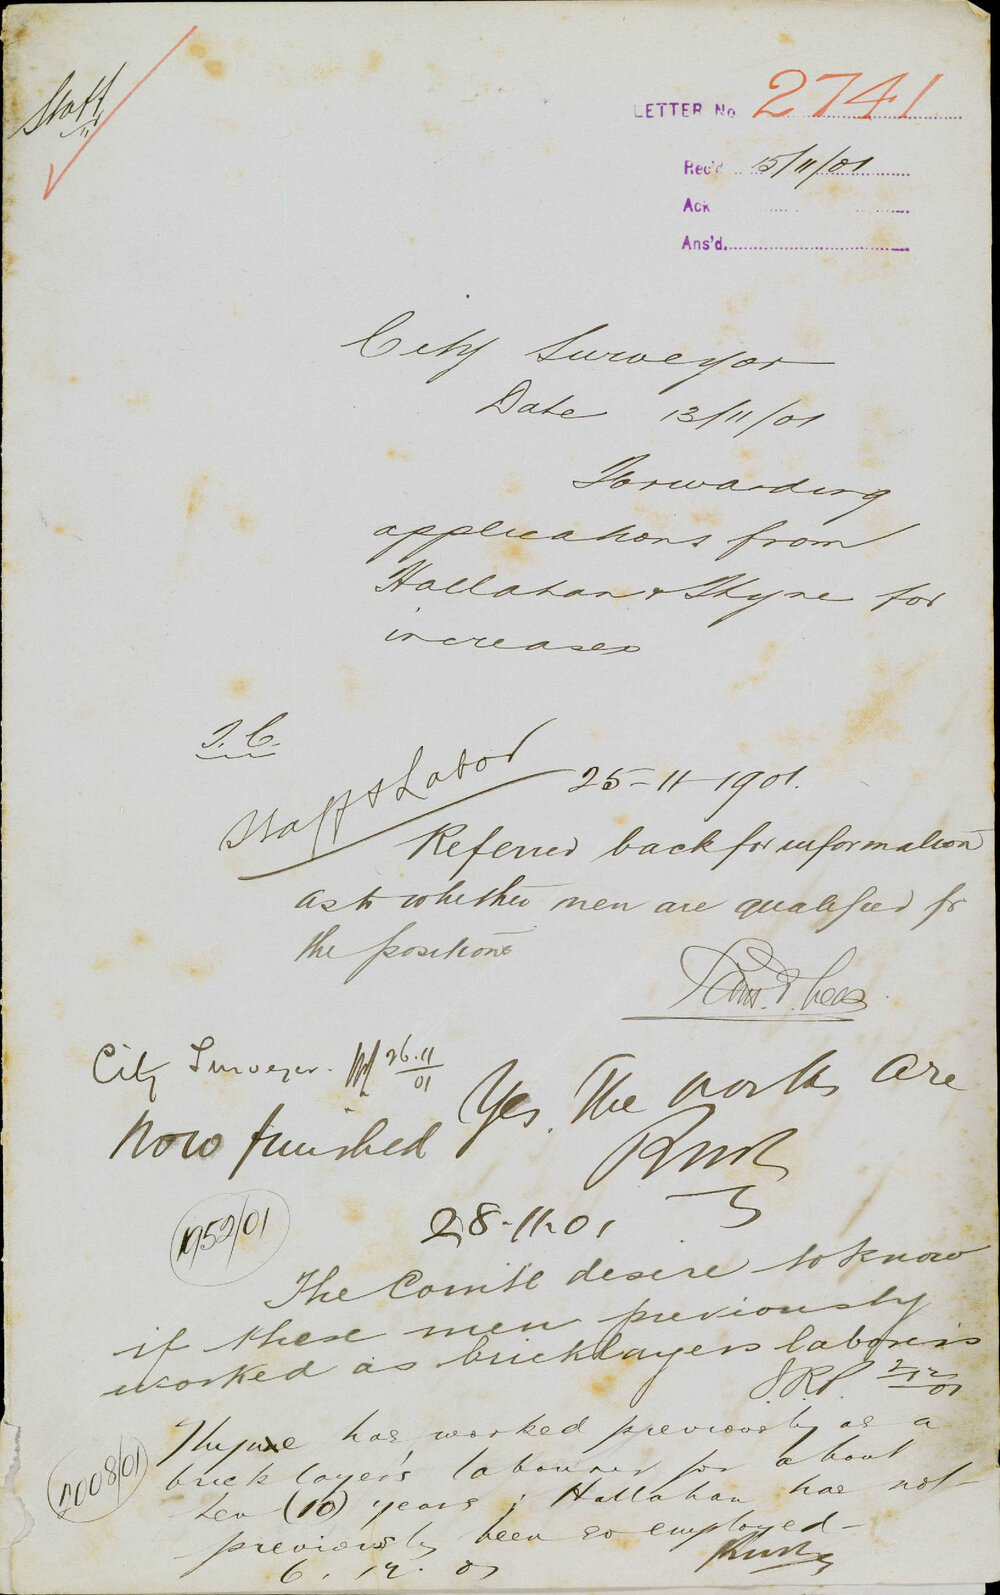 Staff
LETTER No 2741
Rec'd 15/11/01
Ack
Ans'd
City Surveyor
Date 13/11/01
Forwarding
applications from
Hallahan & Thyne for
increases
T.C.
Staff & Labor 25-11-1901.
Referred back for information
as to whether men are qualified for
the positions
City Surveyor. 26.11
01
Yes. The works are
now finished
28-11-01
1952/01
The Comte desire to know
if these men previously
worked as bricklayers laborers
J.R.P. 2/12
01
Thyne has worked previously as a
bricklayer's labourer for about
ten (10) years; Hallahan has not
previously been so employed-
2008/01
6.12.01